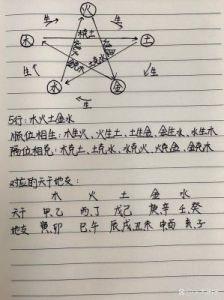 火
生 生
木 木克土 土
生 生
水 金
生
5行：木火土金水
顺位相生：木生火、火生土、土生金、金生水、水生木
隔位相克：木克土、土克水、水克火、火克金、金克木
对应的天干地支：
木 火 土 金 水
天干 甲、乙 丙、丁 戊己 庚、辛 壬、癸
地支 寅、卯 巳、午 辰戌丑未 申酉 亥、子